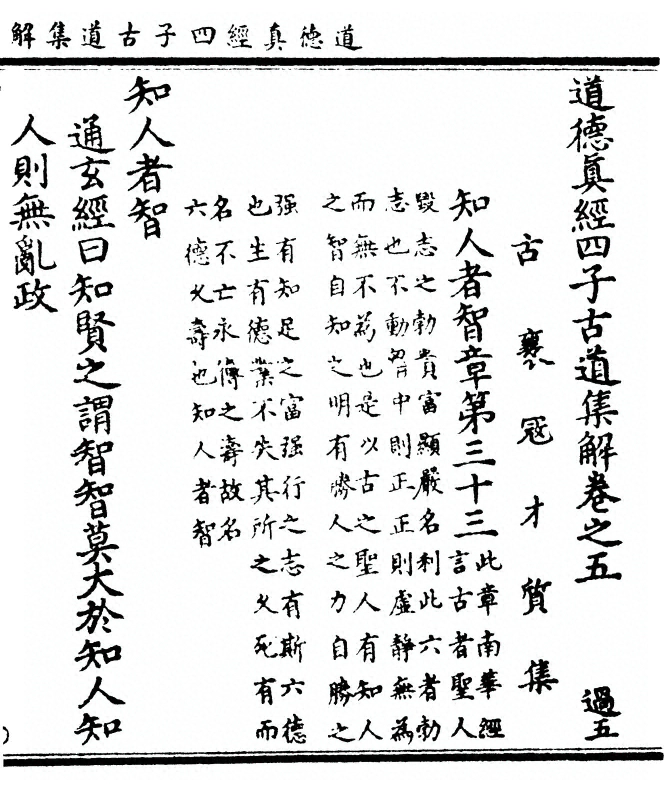 道德真經四子古道集解
道德真經四子古道集解卷之五 過五
古襄冦才質集
知人者智章第三十三
此章南華經
言古者聖人
毀志之勃貴富顯嚴名利此六者勃
志也不動胷中則正正則虛靜無為
而無不為也是以古之聖人有知人
之智自知之明有勝人之力自勝之
强有知足之富强行之志有斯六德
也生有德業不失其所之久死有而
名不亡永傳之壽故名
六德久壽也知人者智
知人者智
通玄經曰知賢之謂智智莫大於知人知
人則無亂政